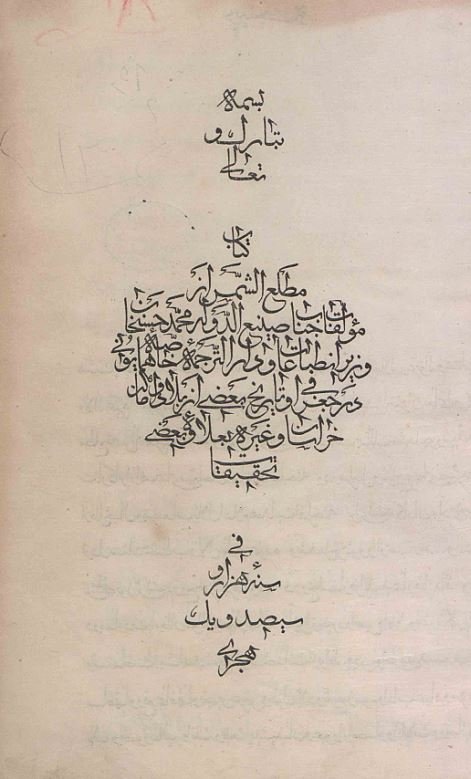 بسمه
تبارک و
تعالی
کتاب
مطلع الشمس از
مؤلفات جناب صنیع الدوله محمد حسنخان
وزیر انطباعات و دارالترجمهٔ خاصهٔ همایونی
در جغرافی و تاریخ بعضی از بلاد و اماکن
خراسان و غیره بعلاوهٔ بعضی
تحقیقات
فی
سنهٔ هزار و
سیصد و یک
هجری